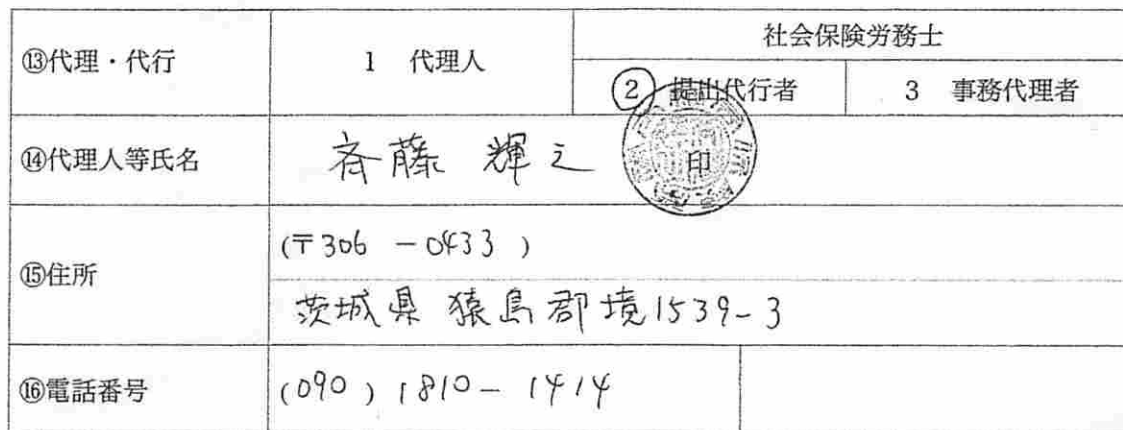 ⑬代理・代行
1 代理人
社会保険労務士
② 提出代行者
3 事務代理者
⑭代理人等氏名
斉藤 輝之
印
⑮住所
(〒306 -0433 )
茨城県 猿島郡境1539-3
⑯電話番号
(090) 1810- 1414